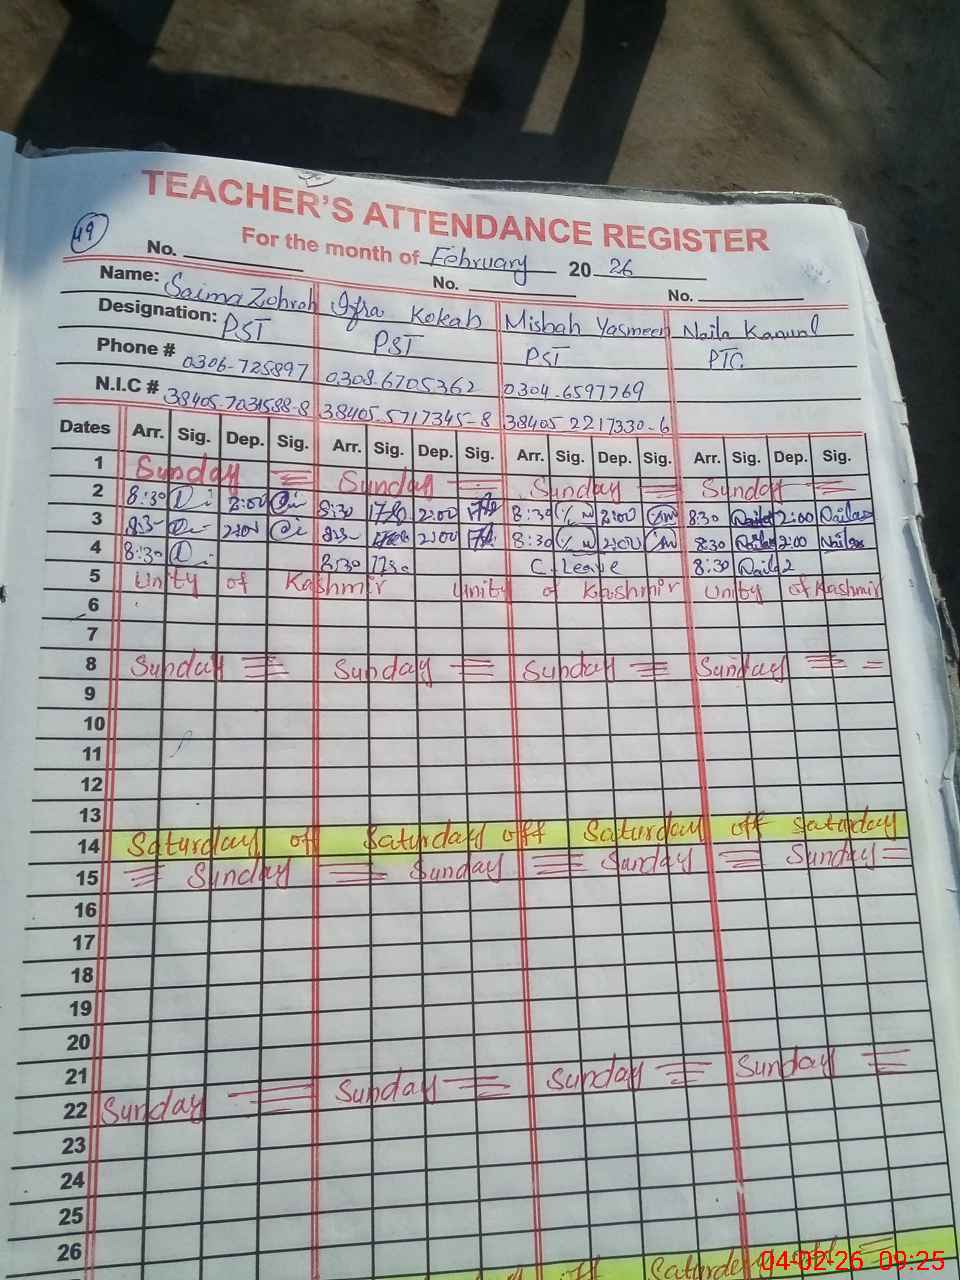 TEACHER'S ATTENDANCE REGISTER
49
For the month of February 2026
No. No. No.
Name: Saima Zohrah Iqra Kokab Misbah Yasmeen Naila Kanwal
Designation: PST PST PST PTC.
Phone # 0306-725897 0308-6705362 0304-6597769
N.I.C # 38405-7031588-8 38405-5717345-8 38405-2217330-6
Dates Arr. Sig. Dep. Sig. Arr. Sig. Dep. Sig. Arr. Sig. Dep. Sig. Arr. Sig. Dep. Sig.
1 Sunday Sunday Sunday Sunday
2 8:30 2:00 8:30 2:00 8:30 2:00 8:30 Naila 2:00 Naila
3 83- 2:00 83- 2:00 8:30 2:00 8:30 Naila 2:00 Naila
4 8:30 8:30 C. Leave 8:30 Naila 2
5 Unity of Kashmir Unity of Kashmir Unity of Kashmir
6
7
8 Sunday Sunday Sunday Sunday
9
10
11
12
13
14 Saturday off Saturday off Saturday off Saturday
15 Sunday Sunday Sunday Sunday
16
17
18
19
20
21
22 Sunday Sunday Sunday Sunday
23
24
25
26
04-02-26 09:25